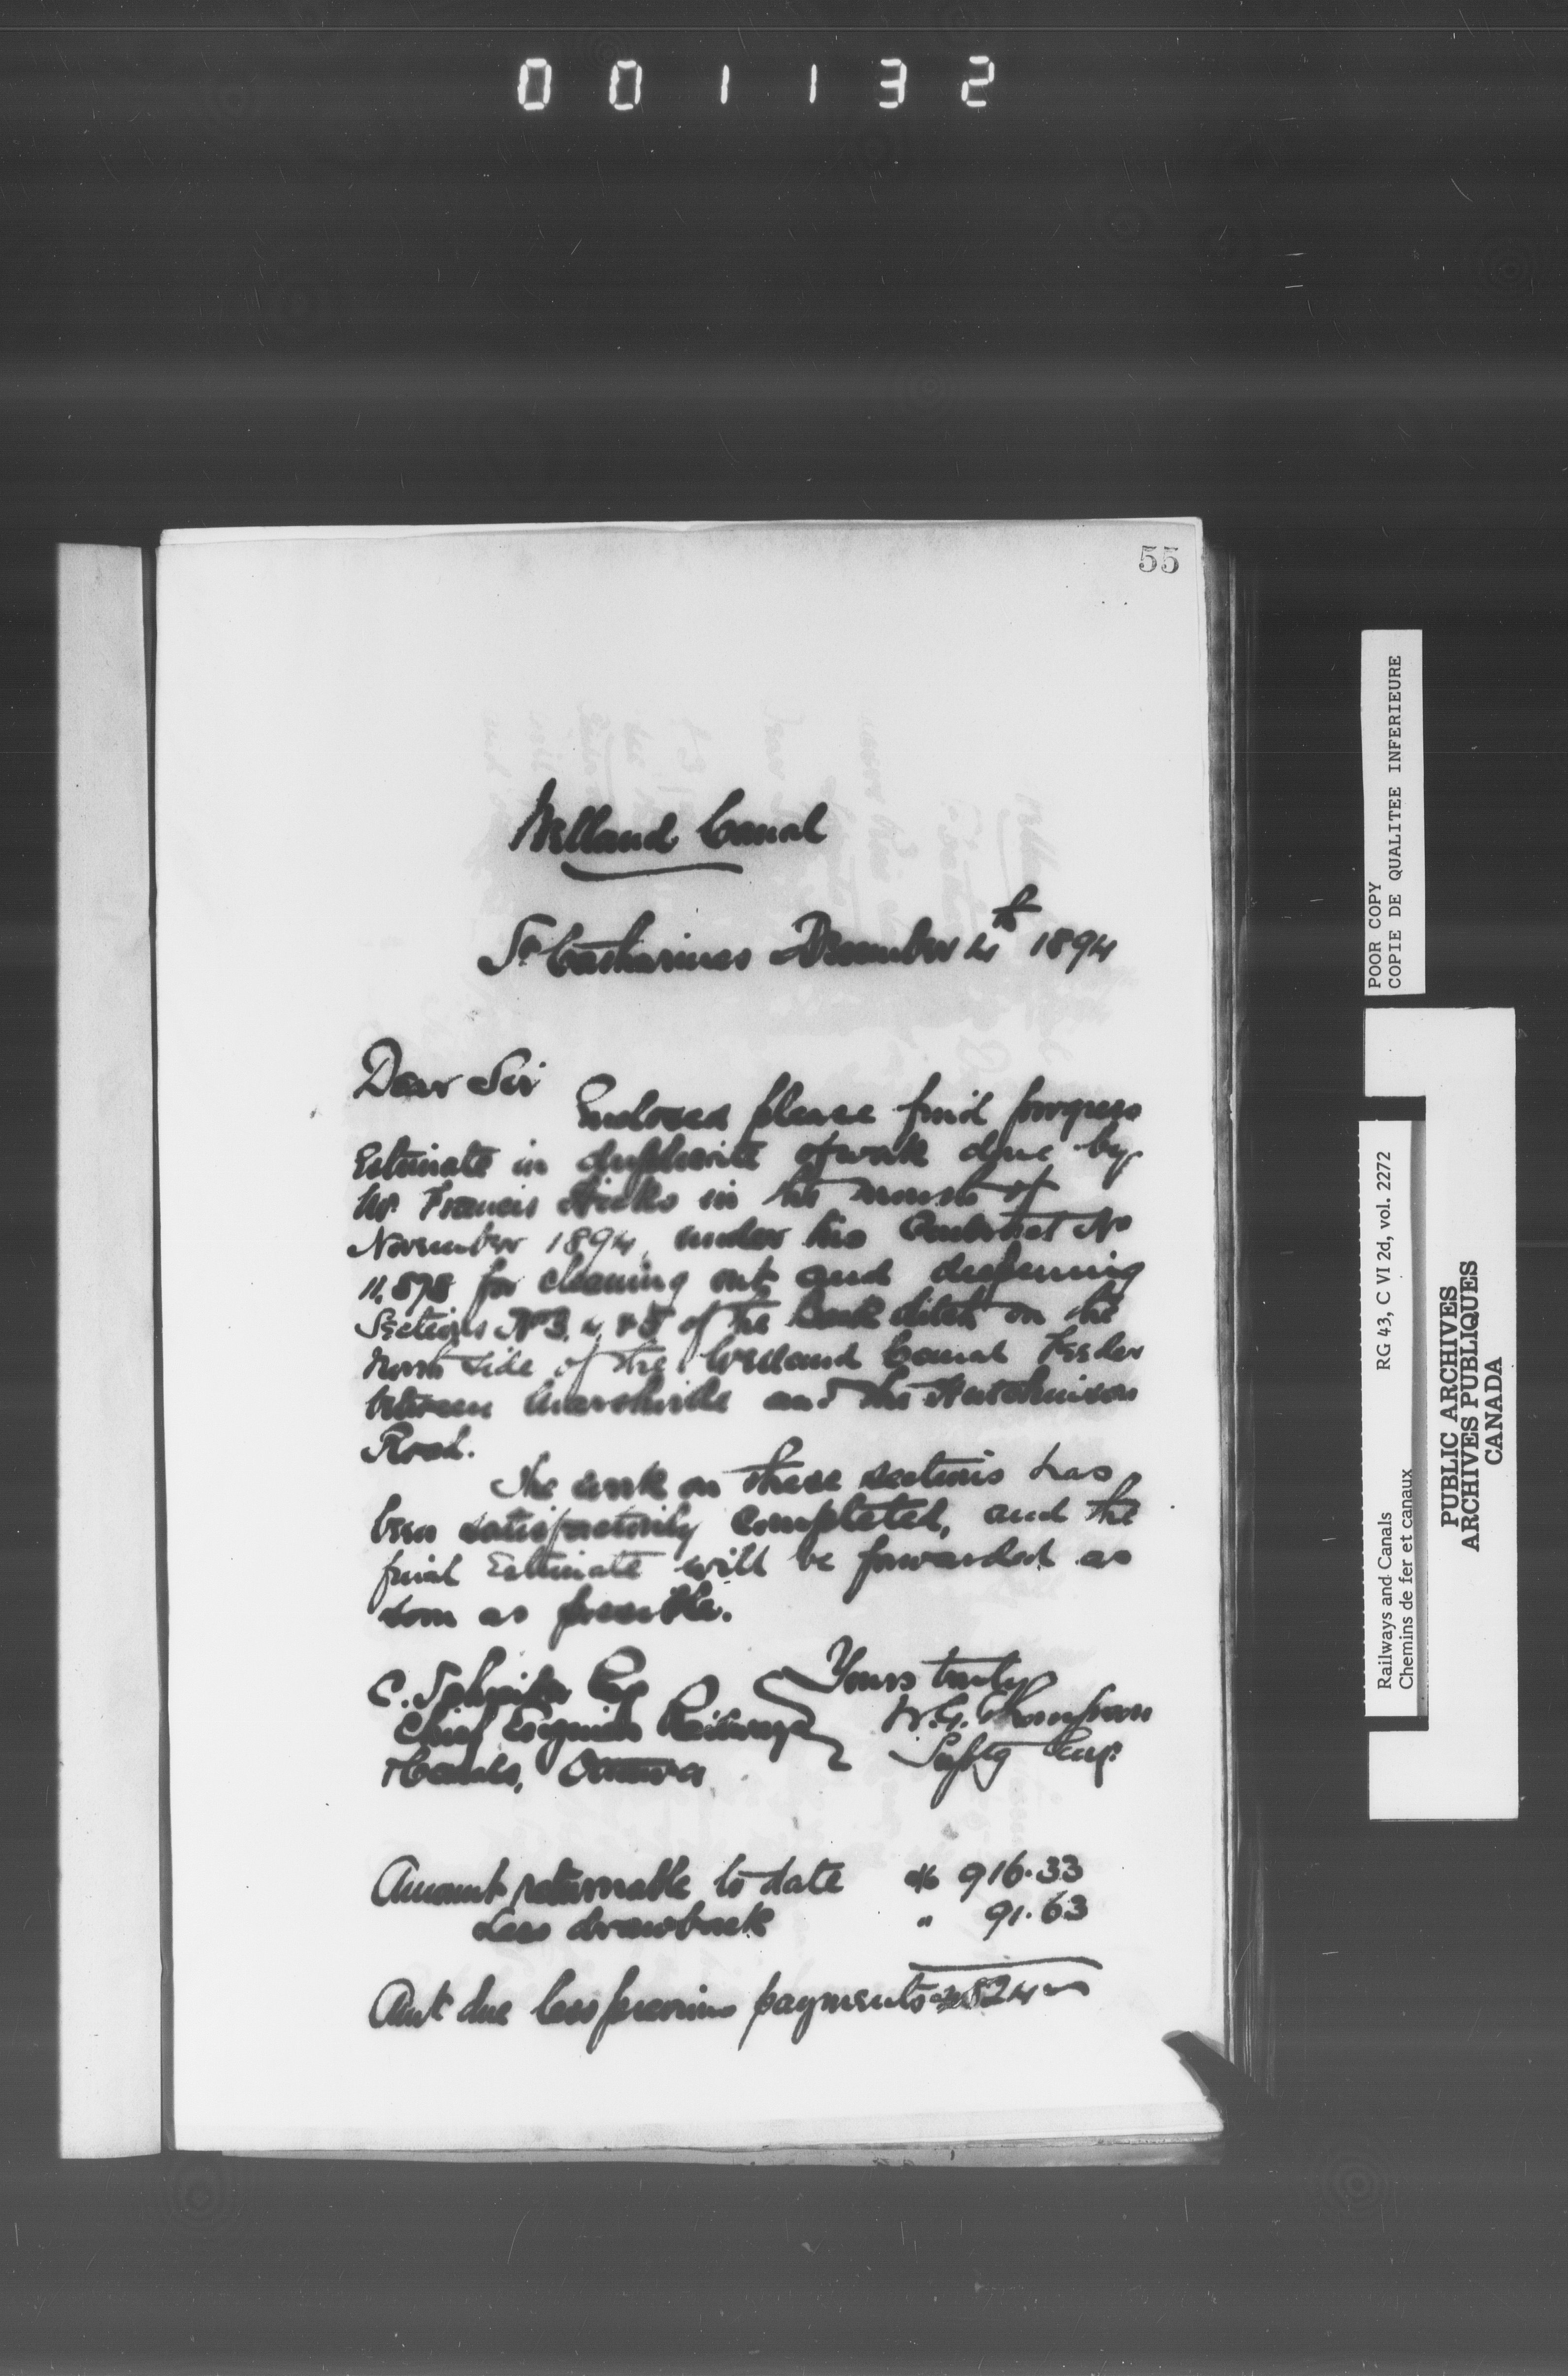 001132
55
Welland Canal
St Catharines December 4th 1894
Dear Sir
Enclosed please find progress
Estimate in duplicate of work done by
Mr Francis Hicks in the month of
November 1894, under his Contract No
11,878 for cleaning out and deepening
Sections No 3, 4, & 5 of the back ditch on the
North side of the Welland Canal Feeder
between Marshville and the Hutchinson
Road.
The work on these sections has
been satisfactorily completed, and the
final Estimate will be forwarded as
soon as possible.
Yours truly
C. Schreiber Esq
W.G. Thompson
Chief Engineer Railways
Suptg Engr
& Canals, Ottawa
Amount returnable to date $ 916.33
Less drawback " 91.63
Amt due less previous payments $ 824
POOR COPY
COPIE DE QUALITEE INFERIEURE
Railways and Canals RG 43, C VI 2d, vol. 2272
Chemins de fer et canaux
PUBLIC ARCHIVES
ARCHIVES PUBLIQUES
CANADA